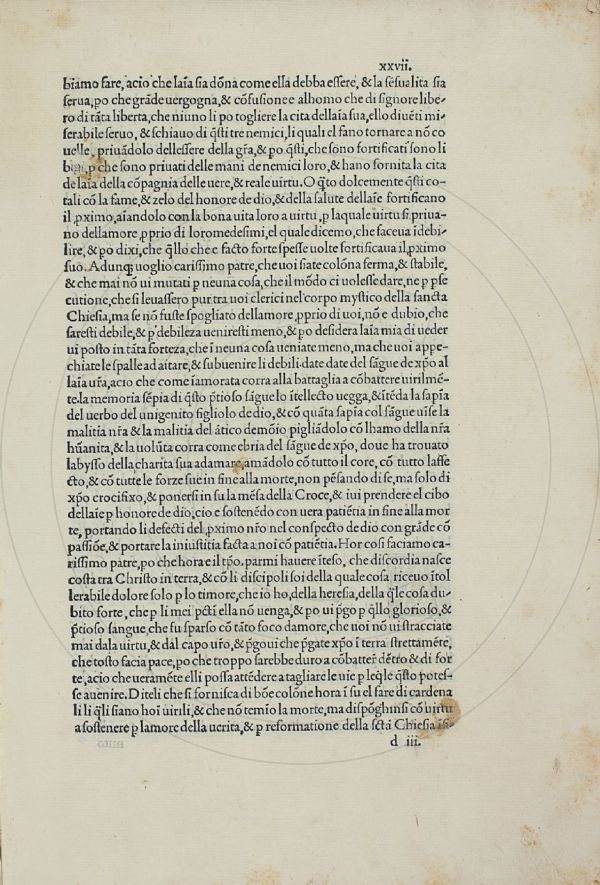 xxvii.
biamo fare, acio che laīa sia dōna come ella debba essere, & la sēsualita sia
serua, po che grāde uergogna, & cōfusione e alhomo che di signore libe-
ro di tāta liberta, che niuno li po togliere la cita dellaīa sua, ello diuēti mi-
serabile seruo, & schiauo di q̄sti tre nemici, li quali el fano tornare a nō co
uelle, priuādolo dellessere della grā, & po q̄sti, che sono fortificati sono li
che sono priuati delle mani de nemici loro, & hano fornita la cita
de laīa della cōpagnia delle uere, & reale uirtu. O q̄to dolcemente q̄sti co-
tali cō la fame, & zelo del honore de dio, & della salute dellaīe fortificano
il ꝓximo, aīandolo con la bona uita loro a uirtu, p laquale uirtu si priua-
no dellamore, ꝓprio di loro medesimi, el quale dicemo, che faceua īdebi-
lire, & po dixi, che q̄llo che e facto forte spesse uolte fortificaua il ꝓximo
suo. Adunqꝫ uoglio carissimo patre, che uoi siate colōna ferma, & stabile,
& che mai nō ui mutati p neuna cosa, che il mōdo ci uolesse dare, ne p pse
cutione, che si leuassero pur tra uoi clerici nel corpo mystico della sancta
Chiesia, ma se nō fuste spogliato dellamore, ꝓprio di uoi, nō e dubio, che
saresti debile, & p debileza ueniresti meno, & po desidera laīa mia di ueder
ui posto in tāta forteza, che ī neuna cosa ueniate meno, ma che uoi appe-
chiate le spalle ad aitare, & subuenire li debili. date date del sāgue de xp̄o al
laīa ur̄a, acio che come īamorata corra alla battaglia a cōbattere uirilmē-
te. la memoria sēpia di q̄sto p̄tioso sāgue lo ītellecto uegga, & ītēda la sapīa
del uerbo del unigenito figliolo de dio, & cō quāta sapīa col sāgue uīse la
malitia nr̄a & la malitia del ātico demōio pigliādolo cō lhamo della nr̄a
hūanita, & la uolūta corra come ebria del sāgue de xp̄o, doue ha trouato
labysso della charita sua ad amare, amādolo cō tutto il core, cō tutto laffe
cto, & cō tutte le forze sue in fine alla morte, non pēsando di se, ma solo di
xp̄o crocifixo, & ponersi in su la mēsa della Croce, & iui prendere el cibo
dellaīe p honore de dio, cio e sostenēdo con uera patiētia in fine alla mor
te, portando li defecti del ꝓximo nr̄o nel conspecto de dio con grāde cō
passiōe, & portare la iniustitia facta a noi cō patiētia. Hor cosi faciamo ca-
rissimo patre, po che hora e il tp̄o. parmi hauere īteso, che discordia nasce
costa tra Christo in terra, & cō li discipoli soi della quale cosa riceuo ītol
lerabile dolore solo p lo timore, che io ho, della heresia, della q̄le cosa du-
bito forte, che p li mei pctī ella nō uenga, & po ui p̄go p q̄llo glorioso, &
p̄tioso sangue, che fu sparso cō tāto foco damore, che uoi nō ui stracciate
mai dala uirtu, & dal capo ur̄o, & p̄goui che p̄gate xp̄o ī terra strettamēte,
che tosto facia pace, po che troppo sarebbe duro a cōbatter dētro & di for
te, acio che ueramēte elli possa attēdere a tagliare le uie p leq̄le q̄sto potes-
se auenire. Diteli che si fornisca di bōe colōne hora ī su el fare di cardena
li li q̄li siano hoī uirili, & che nō temīo la morte, ma dispōghinsi cō uirtu
a sostenere p lamore della uerita, & p reformatione della sctā Chiesia īsi-
d iii.